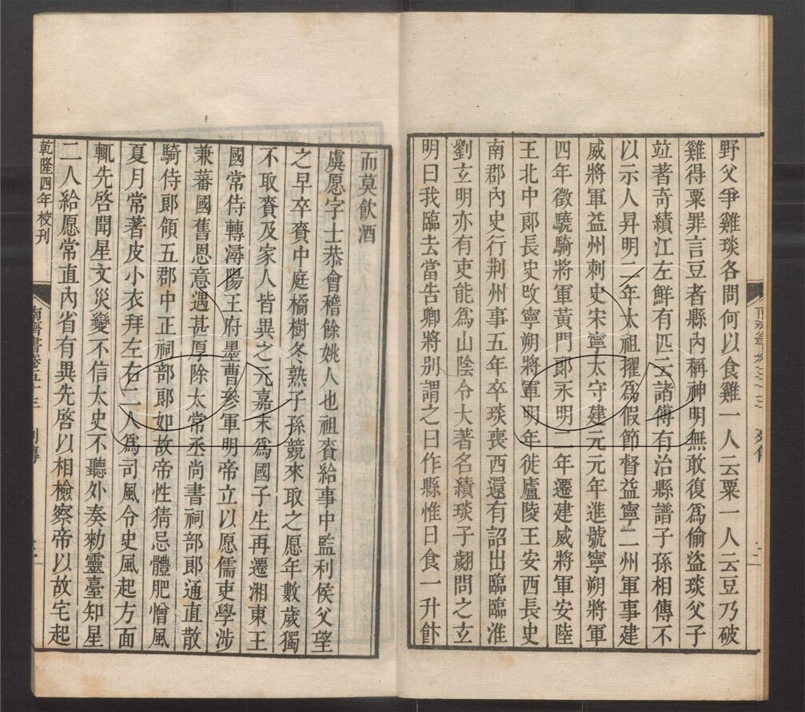 野父爭雞琰各問何以食雞一人云粟一人云豆乃破
雞得粟罪言豆者縣內稱神明無敢復為偷盜琰父子
竝著奇績江左鮮有匹云諸傅有治縣譜子孫相傳不
以示人昇明二年太祖擢為假節督益寧二州軍事建
威將軍益州刺史宋寧太守建元元年進號寧朔將軍
四年徵驍騎將軍黃門郎永明二年遷建威將軍安陸
王北中郎長史改寧朔將軍明年徙廬陵王安西長史
南郡內史行荊州事五年卒琰喪西還有詔出臨臨淮
劉玄明亦有吏能為山陰令大著名績琰子翽問之玄
明曰我臨去當告卿將別謂之曰作縣惟日食一升飰
而莫飲酒
虞愿字士恭會稽餘姚人也祖賚給事中監利侯父望
之早卒賚中庭橘樹冬熟子孫競來取之愿年數歲獨
不取賚及家人皆異之元嘉末為國子生再遷湘東王
國常侍轉潯陽王府墨曹參軍明帝立以愿儒吏學涉
兼蕃國舊恩意遇甚厚除太常丞尚書祠部郎通直散
騎侍郎領五郡中正祠部郎如故帝性猜忌體肥憎風
夏月常著皮小衣拜左右二人為司風令史風起方面
輒先啓聞星文災變不信太史不聽外奏勑靈臺知星
二人給愿常直內省有異先啓以相檢察帝以故宅起
乾隆四年校刊
南齊書卷五十三 列傳